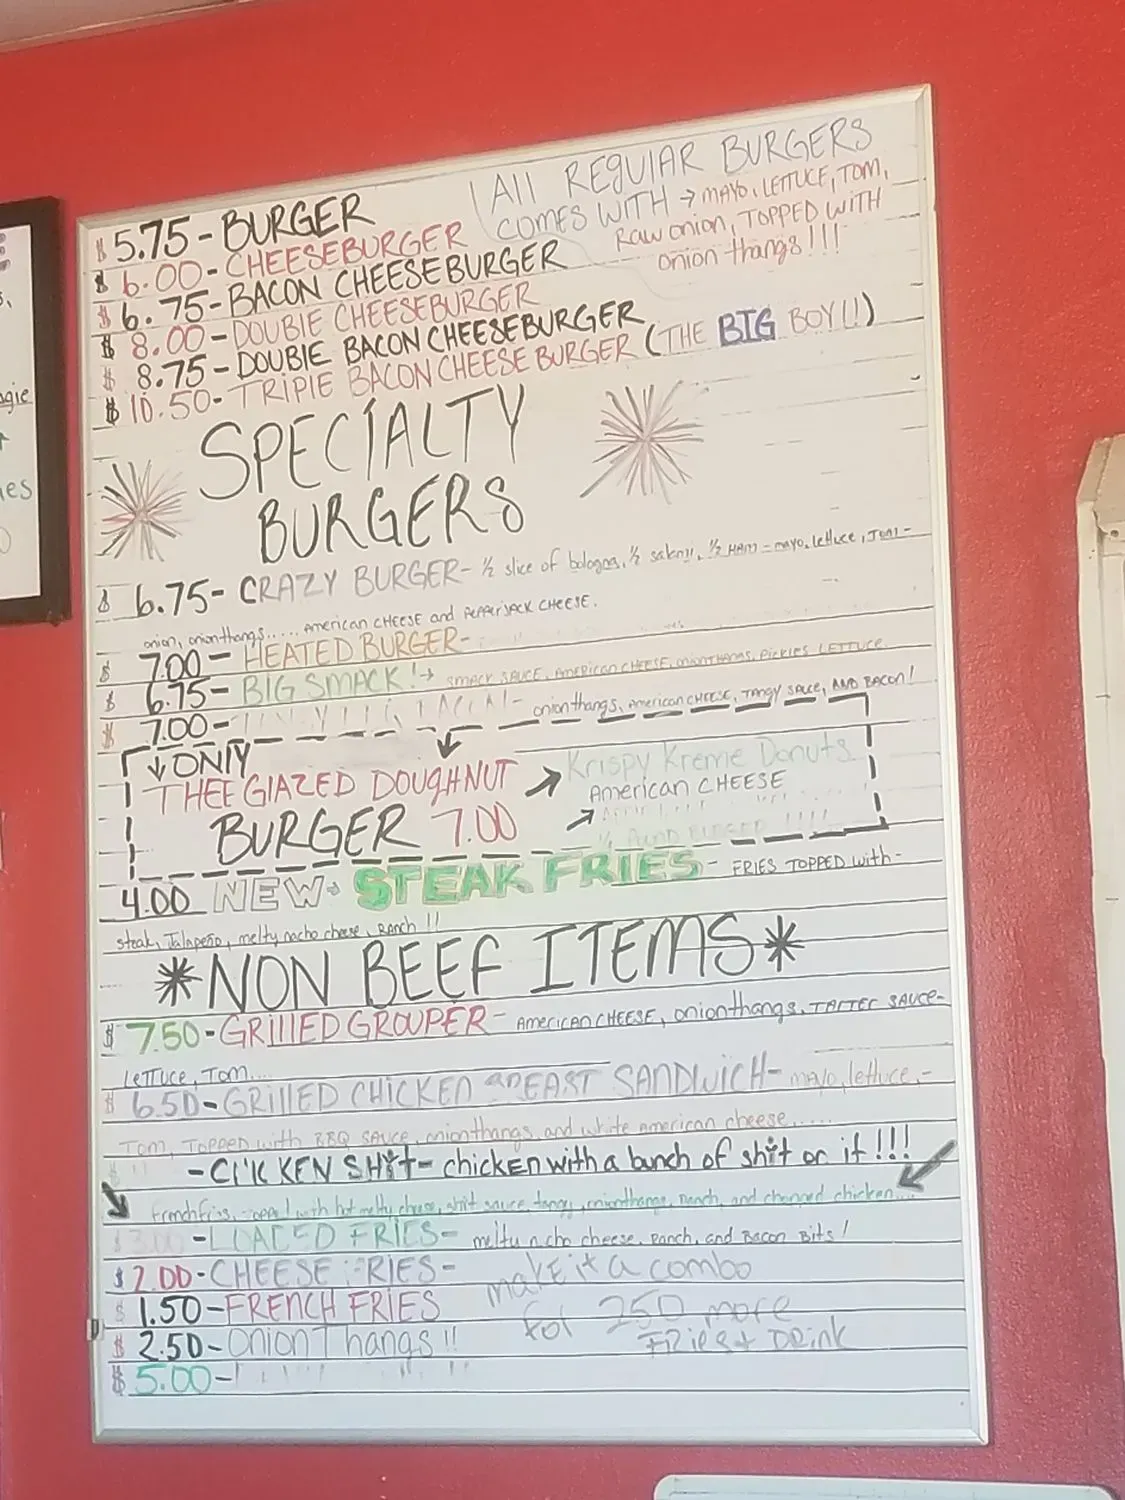 All REGUlAR BURGERS
COMES WITH → MAYO, LETTUCE, TOM,
RAW ONION, TOPPED WITH
onion thangs!!!
$ 5.75 - BURGER
$ 6.00 - CHEESEBURGER
$ 6.75 - BACON CHEESEBURGER
$ 8.00 - DOUBlE CHEESEBURGER
$ 8.75 - DOUBlE BACON CHEESEBURGER
$ 10.50 - TRiPlE BACON CHEESE BURGER (THE BIG BOY!!)
SPECIALTY
BURGERS
$ 6.75 - CRAZY BURGER - ½ slice of bologna, ½ salami, ½ HAM - mayo, lettuce, Tom -
onion, onionthangs..... AMERICAN CHEESE and PEPPERJACK CHEESE.
$ 7.00 - HEATED BURGER -
$ 6.75 - BIG SMACK! → SMACK SAUCE, AMERICAN CHEESE, ONIONTHANGS, PICKLES LETTUCE
$ 7.00 - onionthangs, American CHEESE, TANGY SAUCE, AND BACON!
↓ ONlY
THEE GlAZED DOUGHNUT → Krispy Kreme Donuts
American CHEESE
BURGER 7.00
4.00 NEW → STEAK FRIES - FRIES TOPPED with -
steak, Jalapeño, melty nacho cheese, RANCH !!
*NON BEEF ITEMS*
$ 7.50 - GRillED GROUPER - AMERICAN CHEESE, onionthangs, TARTER SAUCE -
LETTUCE, TOM...
$ 6.50 - GRillED CHICKEN BREAST SANDWiCH - mayo, lettuce, -
TOM, TOPPED with BBQ SAUCE, onionthangs, and white American cheese.....
- CHICKEN SH*t - chicken with a bunch of sh*t on it!!!
French fries, with hot melty cheese, sauce, onionthangs, Ranch, and chopped chicken...
$ 3.00 - LOADED FRIES - melty nacho cheese, Ranch, and Bacon Bits!
$ 2.00 - CHEESE FRIES -
$ 1.50 - FRENCH FRIES
$ 2.50 - ONIONThangs!!
make it a combo
for 250 more
FRies + DRink
$ 5.00 -